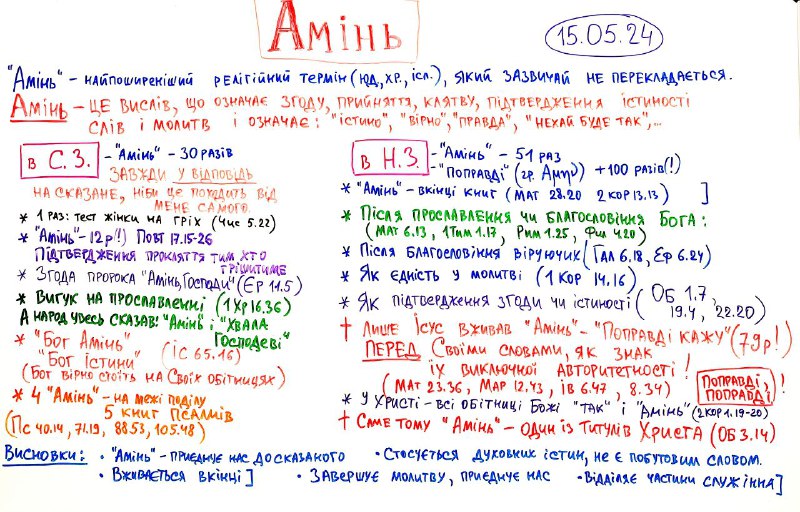 Амінь
15.05.24
"Амінь" – найпоширеніший релігійний термін (юд, хр., ісл.), який зазвичай не перекладається.
Амінь – це вислів, що означає згоду, прийняття, клятву, підтвердження істиності
слів і молитв і означає: "істино", "вірно", "правда", "нехай буде так",...
в С.З. – "Амінь" – 30 разів
завжди у відповідь
на сказане, ніби це походить від
мене самого.
* 1 раз: тест жінки на гріх (Чис 5.22)
* "Амінь" – 12р!!) Повт 17.15-26
Підтвердження прокляття тим хто
грішитиме
* Згода пророка "Амінь, Господи" (Єр 11.5)
* Вигук на прославленні (1 Хр 16.36)
А народ увесь сказав: "Амінь" і "Хвала
Господеві"
* "Бог Амінь"
"Бог істини" (Іс 65.16)
(Бог вірно стоїть на Своїх обітницях)
* 4 "Амінь" – на межі поділу
5 книг Псалмів
(Пс 40.14, 71.19, 88.53, 105.48)
в Н.З. – "Амінь" – 51 раз
– "Поправді" (гр. Αμην) +100 разів(!)
* "Амінь" – вкінці книг (Мат 28.20 2 Кор 13.13) ]
* Після прославлення чи благословіння Бога:
(Мат 6.13, 1 Тим 1.17, Рим 1.25, Фил 4.20)
* Після благословіння віруючих (Гал 6.18, Єф 6.24)
* Як єдність у молитві (1 Кор 14.16)
* Як підтвердження згоди чи істиності (Об 1.7,
19.4, 22.20)
† Лише Ісус вживав "Амінь" – "Поправді кажу" (79р!)
ПЕРЕД Своїми словами, як знак
їх виключної авторитетності!
(Мат 23.36, Мар 12.43, Ів 6.47, 8.34)
Поправді,
поправді!
* У Христі – всі обітниці Божі "так" і "Амінь" (2 Кор 1.19-20)
† Саме тому "Амінь" – один із титулів Христа (Об 3.14)
Висновки: • "Амінь" – приєднує нас до сказаного • Стосується духовних істин, не є побутовим словом.
• Вживається вкінці ] • Завершує молитву, приєднує нас • Відділяє частини служіння ]